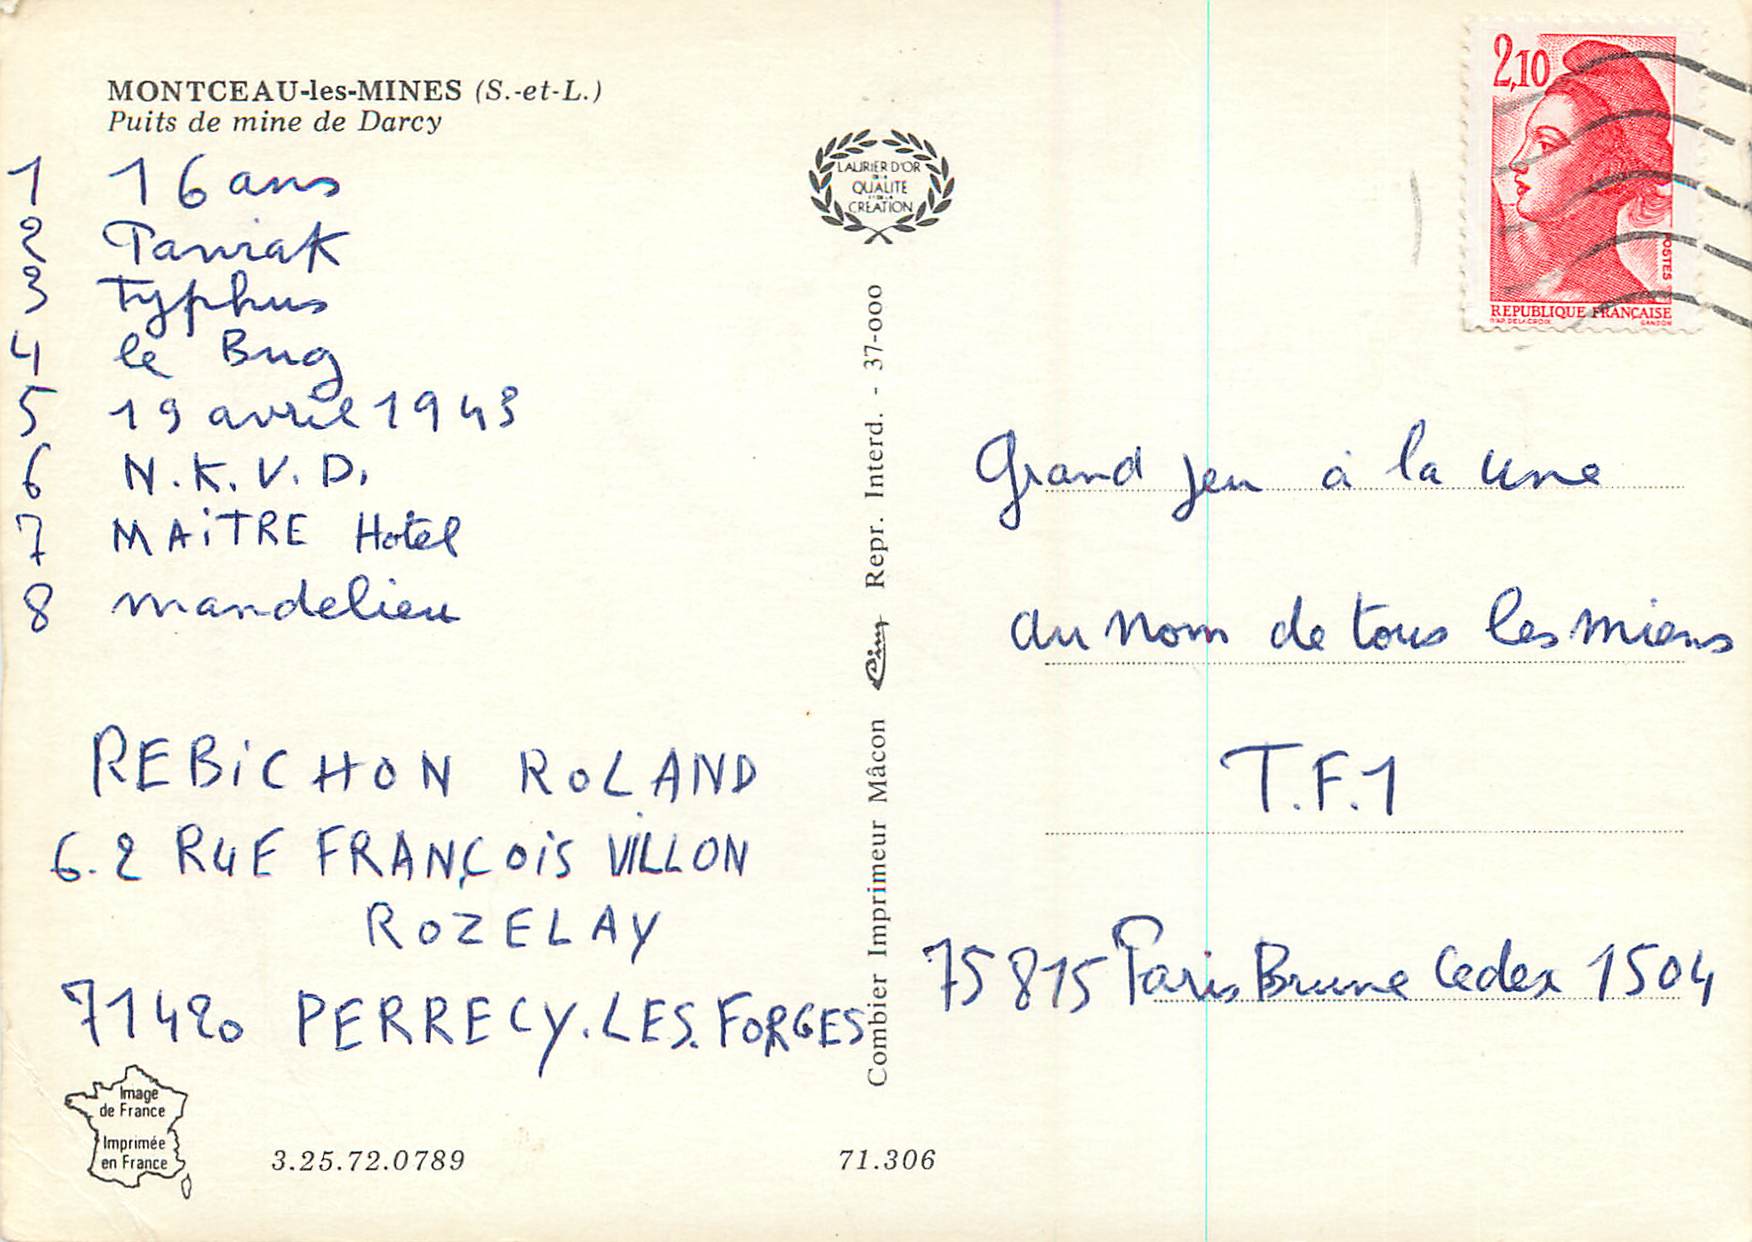 MONTCEAU-les-MINES (S.-et-L.)
Puits de mine de Darcy
1 16 ans
2 Pawiak
3 Typhus
4 le Bug
5 19 avril 1943
6 N.K.V.D.
7 MAiTRE Hotel
8 mandelieu
REBiCHON ROLAND
6.2 RUE FRANÇOiS VILLON
ROZELAY
71420 PERRECY.LES.FORGES
Image
de France
Imprimée
en France
3.25.72.0789
71.306
LAURIER D'OR
DE LA
QUALITE
ET DE LA
CREATION
Combier Imprimeur Mâcon Cim Repr. Interd. - 37-000
2,10
POSTES
REPUBLIQUE FRANÇAISE
D'AP. DELACROIX GANDON
Grand jeu à la une
au nom de tous les miens
T.F.1
75815 Paris Brune Cedex 1504